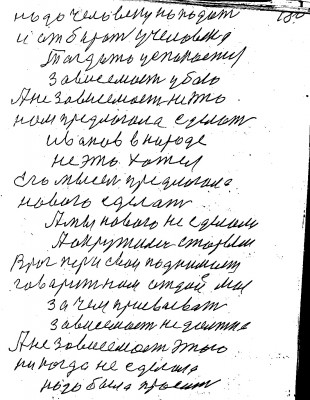 надо человеку нападат
и отбират у человека
Тагдато успокаетса
зависемост убла
А независемост нето
нам предлогала сделат
иванов в народе
не это хател
Его мысел предлогала
нового сделат
А мы нового не сделали
А окружили старем
Враг пери свои поднимает
говарит нам отдай мол
зачем прививат
зависемост не должна
А независемост этого
никогда не сделала
надо была просит